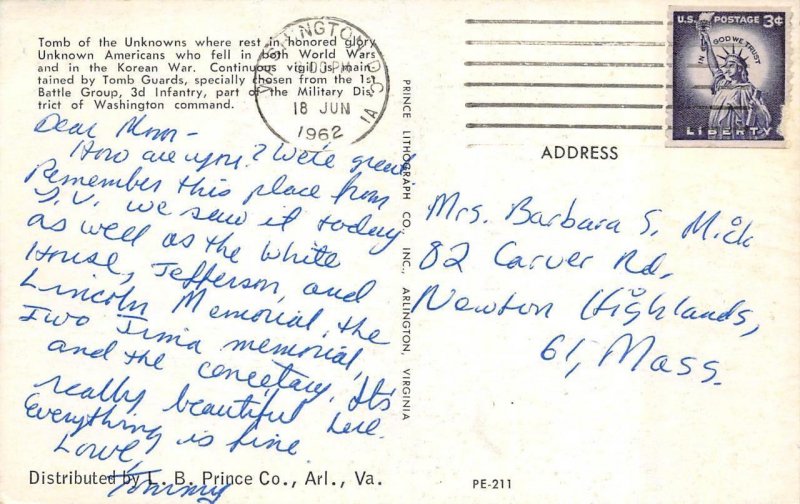 Tomb of the Unknowns where rest in honored glory
Unknown Americans who fell in both World Wars
and in the Korean War. Continuous vigil is main-
tained by Tomb Guards, specially chosen from the 1st
Battle Group, 3d Infantry, part of the Military Dis-
trict of Washington command.
Dear Mom -
How are you? We're great
Remember this place from
T.V. we saw it today
as well as the White
House, Jefferson, and
Lincoln Memorial, the
Iwo Jima memorial,
and the cemetary. It's
really beautiful here.
Everything is fine
Love,
Tommy
Distributed by L. B. Prince Co., Arl., Va.
PRINCE LITHOGRAPH CO. INC., ARLINGTON, VIRGINIA
WASHINGTON, D.C.
PM
18 JUN
1962
U.S. POSTAGE 3¢
IN GOD WE TRUST
LIBERTY
ADDRESS
Mrs. Barbara S. Mick
82 Carver Rd.
Newton Highlands,
61, Mass.
PE-211